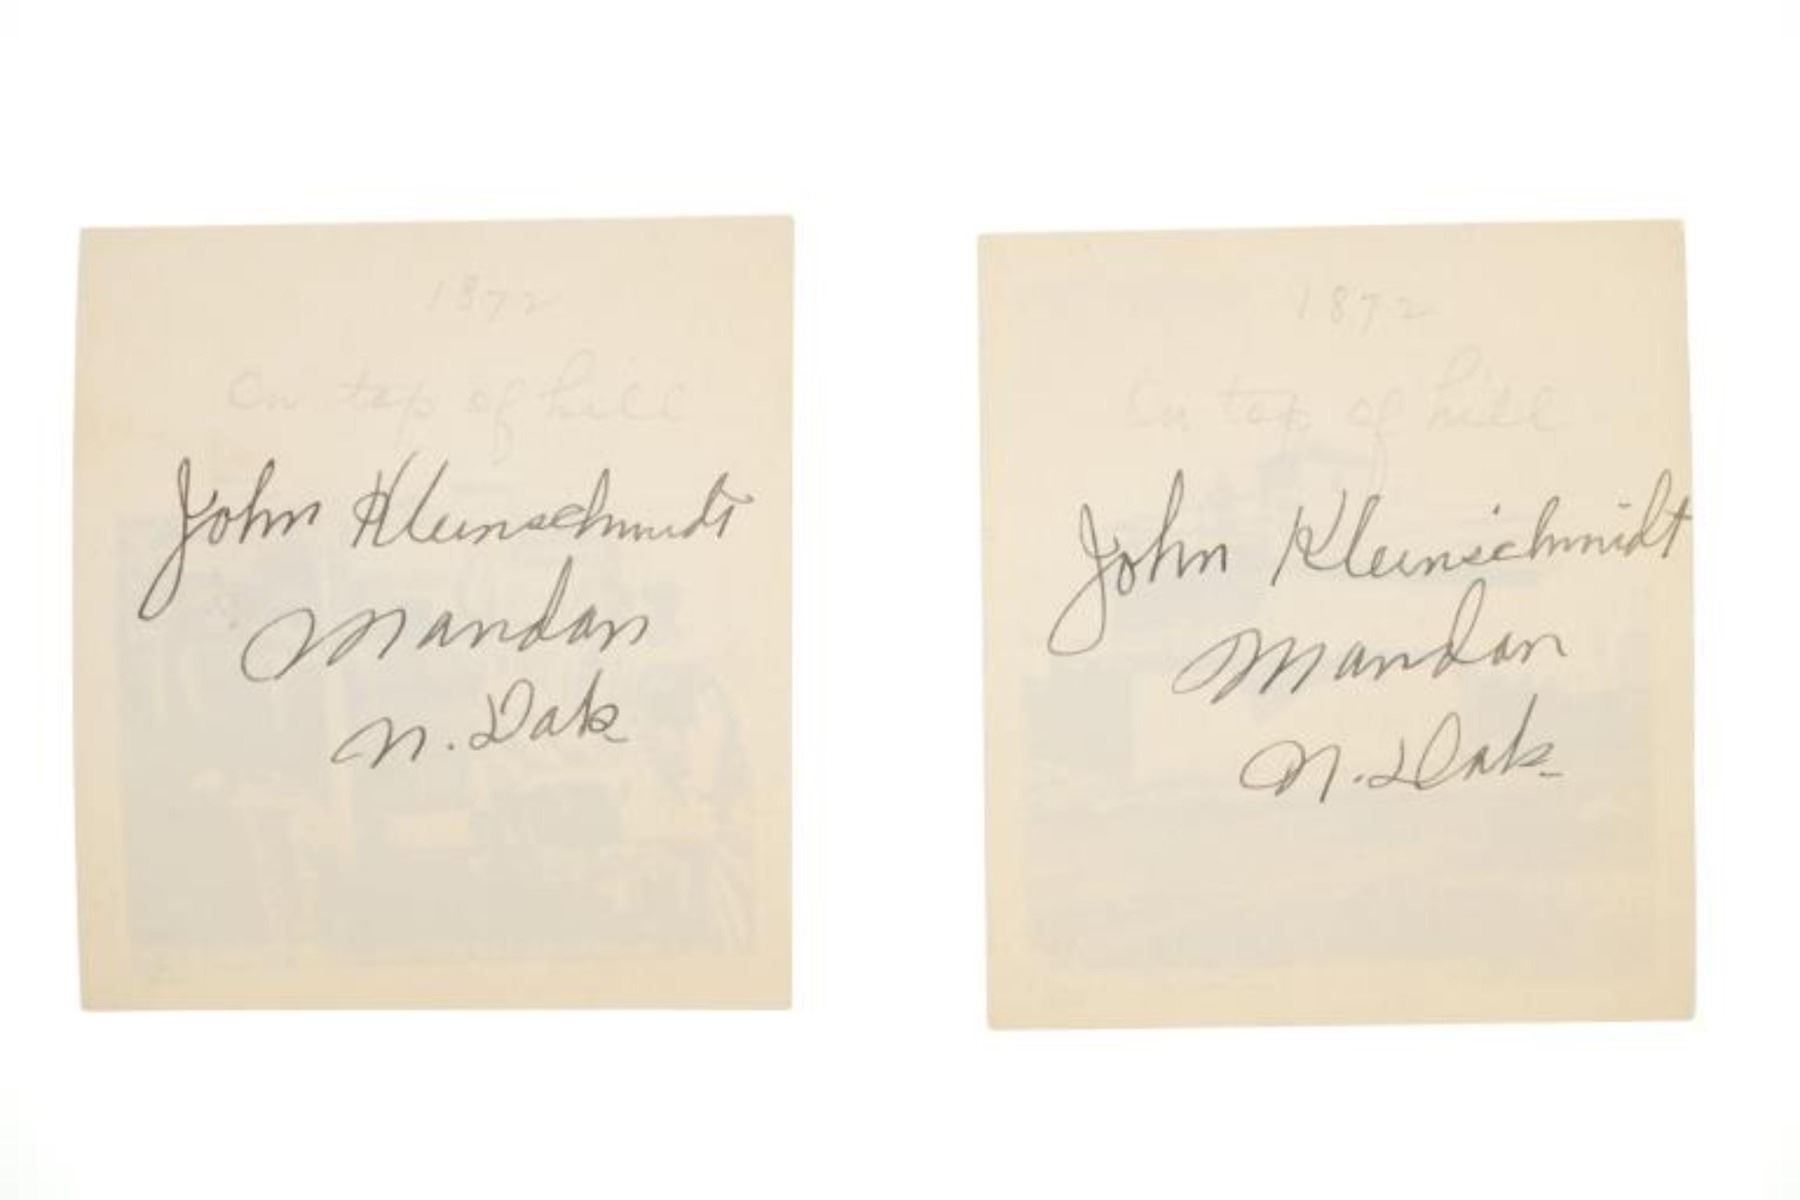 1872
On top of hill
John Kleinschmidt
Mandan
N. Dak
1872
On top of hill
John Kleinschmidt
Mandan
N. Dak.